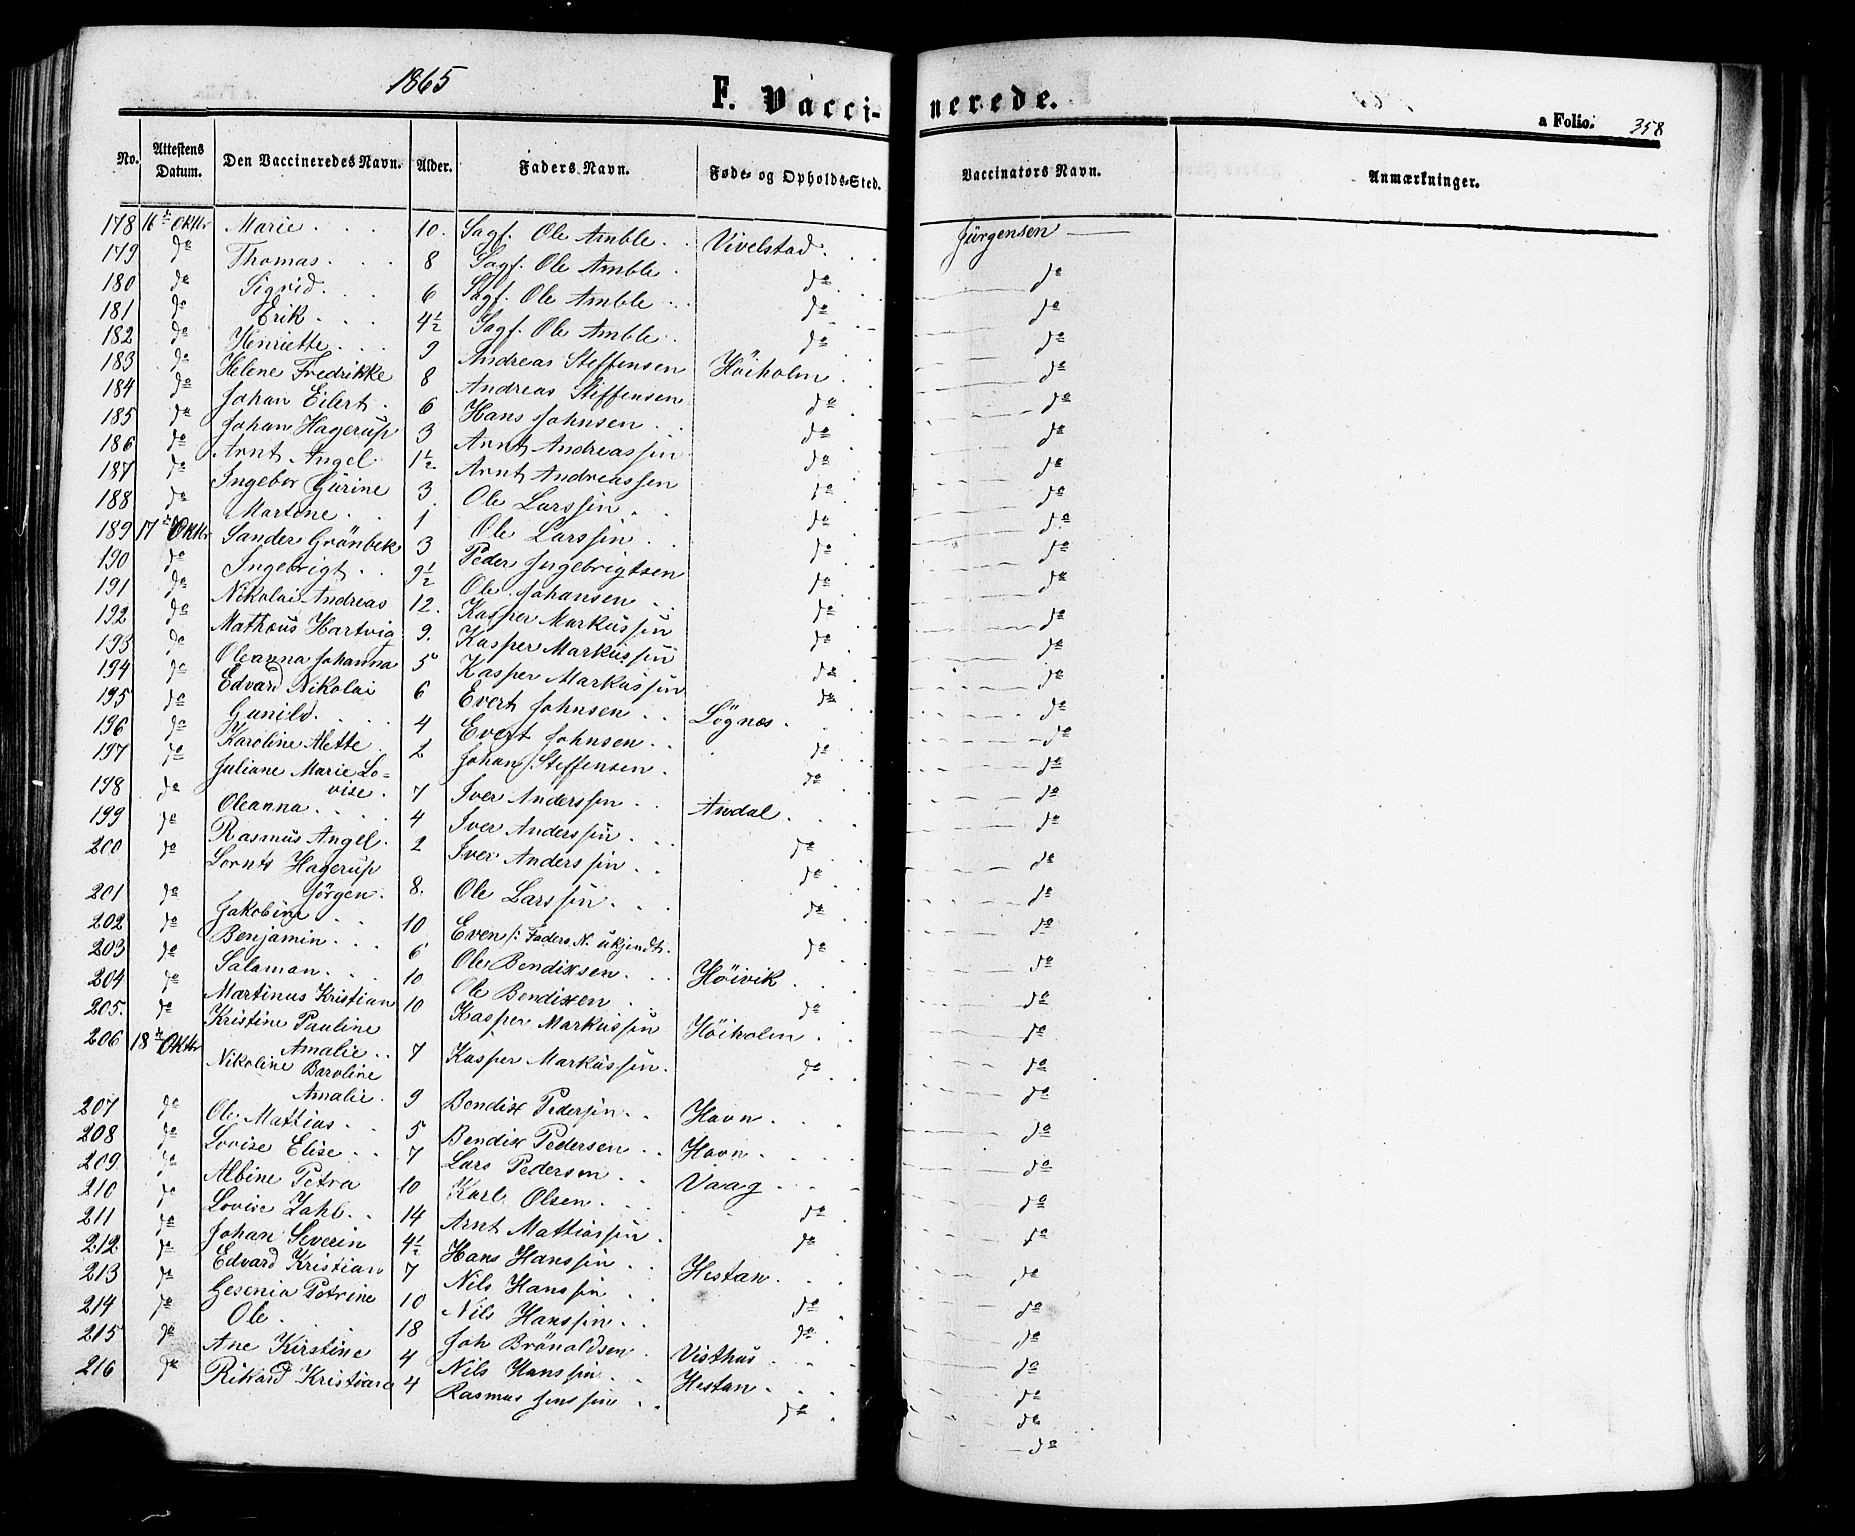 1865
F. Vacci-
nerede.
a Folio. 358
No. Attestens Datum. Den Vaccineredes Navn. Alder. Faders Navn. Føde- og Opholds-Sted. Vaccinators Navn. Anmærkninger.
178 16 Oktbr Marie 10. Sagf. Ole Amble Vivelstad Jürgensen
179 do Thomas 8 Sagf. Ole Amble do do
180 do Sigrid 6 Sagf. Ole Amble do do
181 do Erik 4½ Sagf. Ole Amble do do
182 do Henriette 9 Andreas Steffensen Höiholm do
183 do Helene Fredrikke 8 Andreas Steffensen do do
184 do Johan Eilert 6 Hans Johnsen do do
185 do Johan Hagerup 3 Arnt Andreassen do do
186 do Arnt Angel 1½ Arnt Andreassen do do
187 do Ingebor Gurine 3 Ole Larssen do do
188 do Martine 1 Ole Larssen do do
189 17 Oktbr Sander Grönbek 3 Peder Ingebrigtsen do do
190 do Ingebrigt 9½ Ole Johansen do do
191 do Nikolai Andreas 12. Kasper Markussen do do
192 do Mathæus Hartvig 9. Kasper Markussen do do
193 do Oleanna Johanna 5 Kasper Markussen do do
194 do Edvard Nikolai 6 Evert Johnsen Lögnæs do
195 do Gunild 4 Evert Johnsen do do
196 do Karoline Alette 2 Johan Steffensen do do
197 do Juliane Marie Lo-
vise 7 Iver Anderssen Andal do
198 do Oleanna 4 Iver Anderssen do do
199 do Rasmus Angel 2 Iver Anderssen do do
200 do Lornts Hagerup
Jörgen 8. Ole Larssen do do
201 do Jakobine 10 Even /: Faders N. ukjendt do do
202 do Benjamin 6 Ole Bendixsen Höivik do
203 do Salaman 10 Ole Bendixen do do
204 do Martinus Kristian 10 Kasper Markussen Höiholm do
205. do Kristine Pauline
Amalie 7 Kasper Markussen do do
206 18 Oktbr Nikoline Baroline
Amalie 9 Bendix Pedersen Havn do
207 do Ole Mattias 5 Bendix Pedersen Havn do
208 do Lovise Elise 7 Lars Pedersen Vaag do
209 do Albine Petra 10 Karl Olsen do do
210 do Lovise Zahl 14 Arnt Mattiassen do do
211 do Johan Severin 4½ Hans Hanssen Hestan do
212 do Edvard Kristian 7 Nils Hanssen do do
213 do Gesenia Petrine 10 Nils Hanssen do do
214 do Ole 18 Joh Brönoldsen Visthus do
215 do Ane Kirstine 4 Nils Hanssen Hestan do
216 do Rikard Kristian 4 Rasmus Jenssen do do